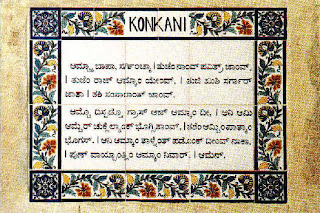 KONKANI
ಆಮ್ಚ್ಯಾ ಬಾಪಾ, ಸರ್ಗಿಂಚ್ಯಾ | ತುಜೆಂ ನಾಂವ್ ಪವಿತ್ರ್ ಜಾಂವ್.
| ತುಜೆಂ ರಾಜ್ ಆಮ್ಕಾಂ ಯೇಂವ್. | ತುಜಿ ಖುಶಿ ಸರ್ಗಾರ್
ಜಾತಾ | ತಶಿ ಸಂಸಾರಾಂತ್ ಜಾಂವ್.
ಆಮ್ಚೊ ದಿಸ್ಪಡ್ತೊ ಗ್ರಾಸ್ ಆಜ್ ಆಮ್ಕಾಂ ದೀ, | ಆನಿ ಆಮಿ
ಆಮ್ಚೆರ್ ಚುಕ್ಲೆಲ್ಯಾಂಕ್ ಭೊಗ್ಶಿತಾಂವ್, |
ಭೊಗಸ್. | ಆನಿ ಆಮ್ಕಾಂ ತಾಳ್ಣೆಂತ್ ಪಡೊಂಕ್ ದೀಂವ್ ನಾಕಾ,
| ಪುಣ್ ವಾಯ್ಟಾಂತ್ಲಿಂ ಆಮ್ಕಾಂ ನಿವಾರ್. | ಆಮೆನ್.